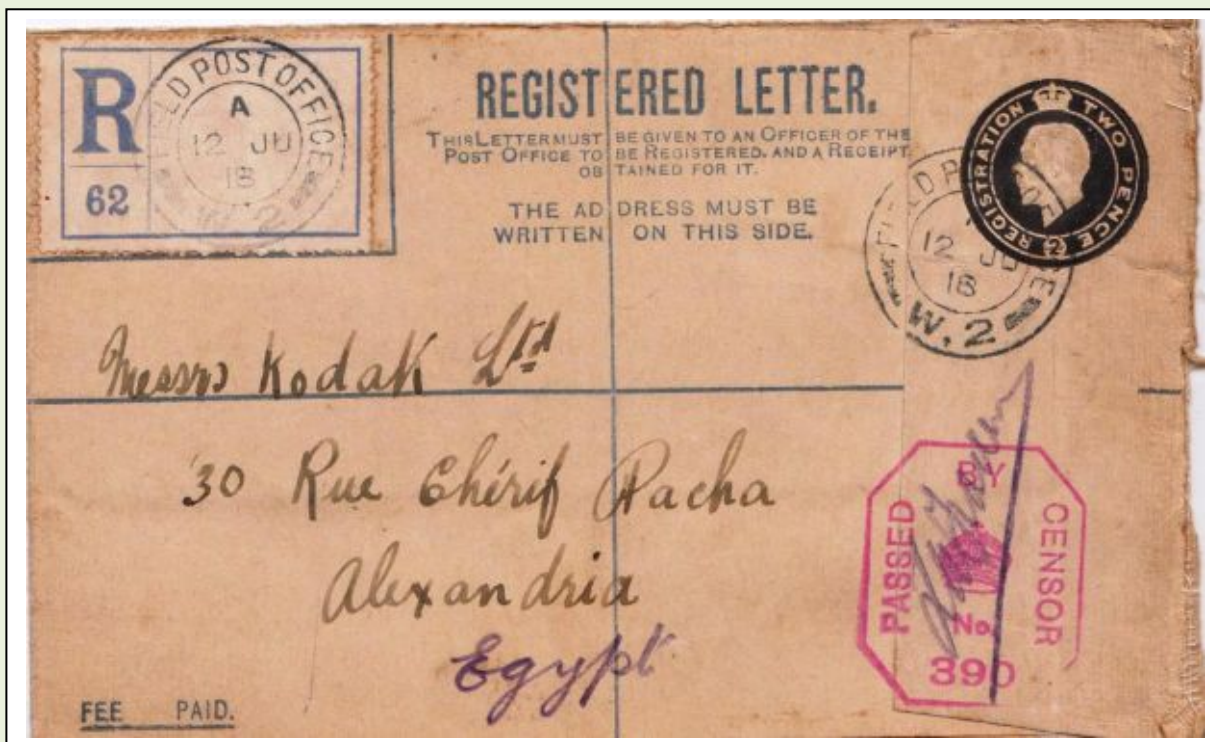 R
62
FIELD POST OFFICE
A
12 JU
18
W.2
REGISTERED LETTER.
THIS LETTER MUST BE GIVEN TO AN OFFICER OF THE
POST OFFICE TO BE REGISTERED, AND A RECEIPT
OBTAINED FOR IT.
THE ADDRESS MUST BE
WRITTEN ON THIS SIDE.
REGISTRATION TWO PENCE 2
FIELD POST OFFICE
12 JU
18
W.2
Messrs Kodak Ltd
30 Rue Chérif Pacha
Alexandria
Egypt
PASSED BY CENSOR
No.
390
FEE PAID.